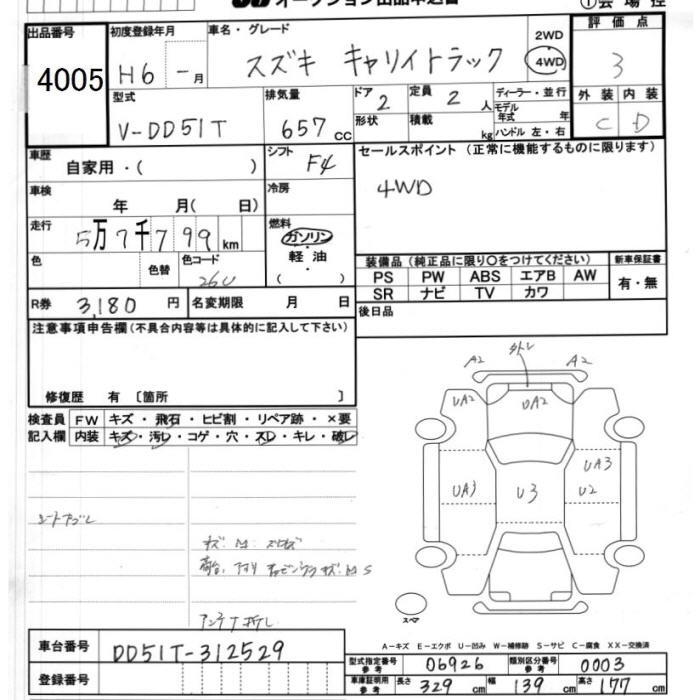 オークション出品申込書 ①会場控
出品番号 4005
初度登録年月 H6 - 月
車名・グレード スズキ キャリイトラック
2WD 4WD
評価点 3
型式 V-DD51T
排気量 657 cc
ドア 2
定員 2 人
形状 積載 kg
ディーラー・並行
モデル年式 年
ハンドル 左・右
外装 内装
C D
車歴 自家用・( )
シフト F4
セールスポイント (正常に機能するものに限ります)
4WD
車検 年 月( 日)
冷房
走行 5万7千799 km
燃料 ガソリン
軽油
( )
色 色替 色コード 26U
装備品 (純正品に限り○をつけてください)
新車保証書
PS PW ABS エアB AW
SR ナビ TV カワ
有・無
R券 3,180 円
名変期限 月 日
後日品
注意事項申告欄(不具合内容等は具体的に記入して下さい)
修復歴 有 〔箇所 〕
検査員記入欄
FW キズ・飛石・ヒビ割・リペア跡・×要
内装 キズ・汚レ・コゲ・穴・スレ・キレ・破レ
A2 A2
UA2 UA2
UA3 U3 UA3
U2
スペア
アンテナ折レ
車台番号 DD51T-312529
登録番号
A-キズ E-エクボ U-凹み W-補修跡 S-サビ C-腐食 XX-交換済
型式指定番号 参考 06926
類別区分番号 参考 0003
車庫証明用 参考 長さ 329 cm 幅 139 cm 高さ 177 cm